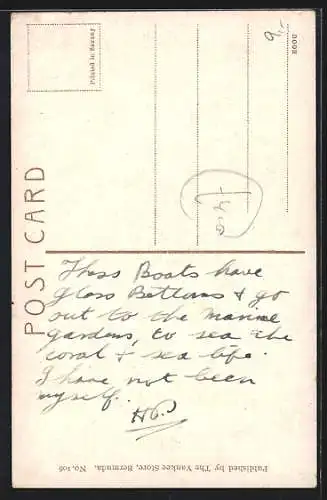 POST CARD
Printed in Saxony
5002
These Boats have
glass Bottoms & go
out to the Marine
gardens, to sea the
coral & sea life.
I have not been
myself.
Published by The Yankee Store, Bermuda. No. 106